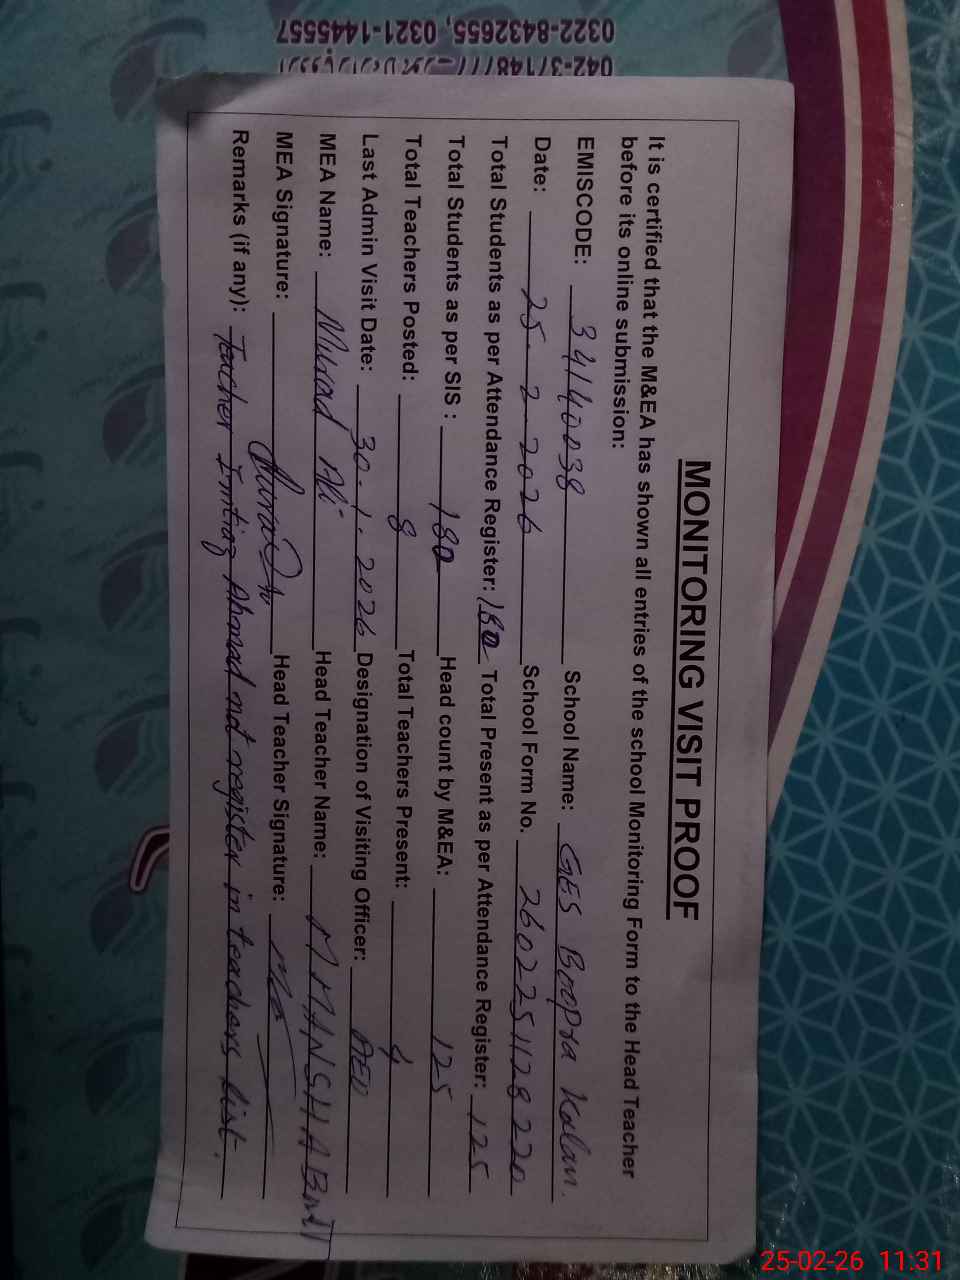 MONITORING VISIT PROOF
It is certified that the M&EA has shown all entries of the school Monitoring Form to the Head Teacher
before its online submission:
EMISCODE: 34140038 School Name: GES Boopra Kalan.
Date: 25-2-2026 School Form No. 2602251128220
Total Students as per Attendance Register: 180 Total Present as per Attendance Register: 125
Total Students as per SIS : 180 Head count by M&EA: 125
Total Teachers Posted: 8 Total Teachers Present:
Last Admin Visit Date: 30-1-2026 Designation of Visiting Officer: AEO
MEA Name: Ali Head Teacher Name: M MANSHA
MEA Signature: Head Teacher Signature:
Remarks (if any): Teacher Imtiaz Ahmad not register in teachers list.
0322-8432655, 0321-1445557
25-02-26 11.31